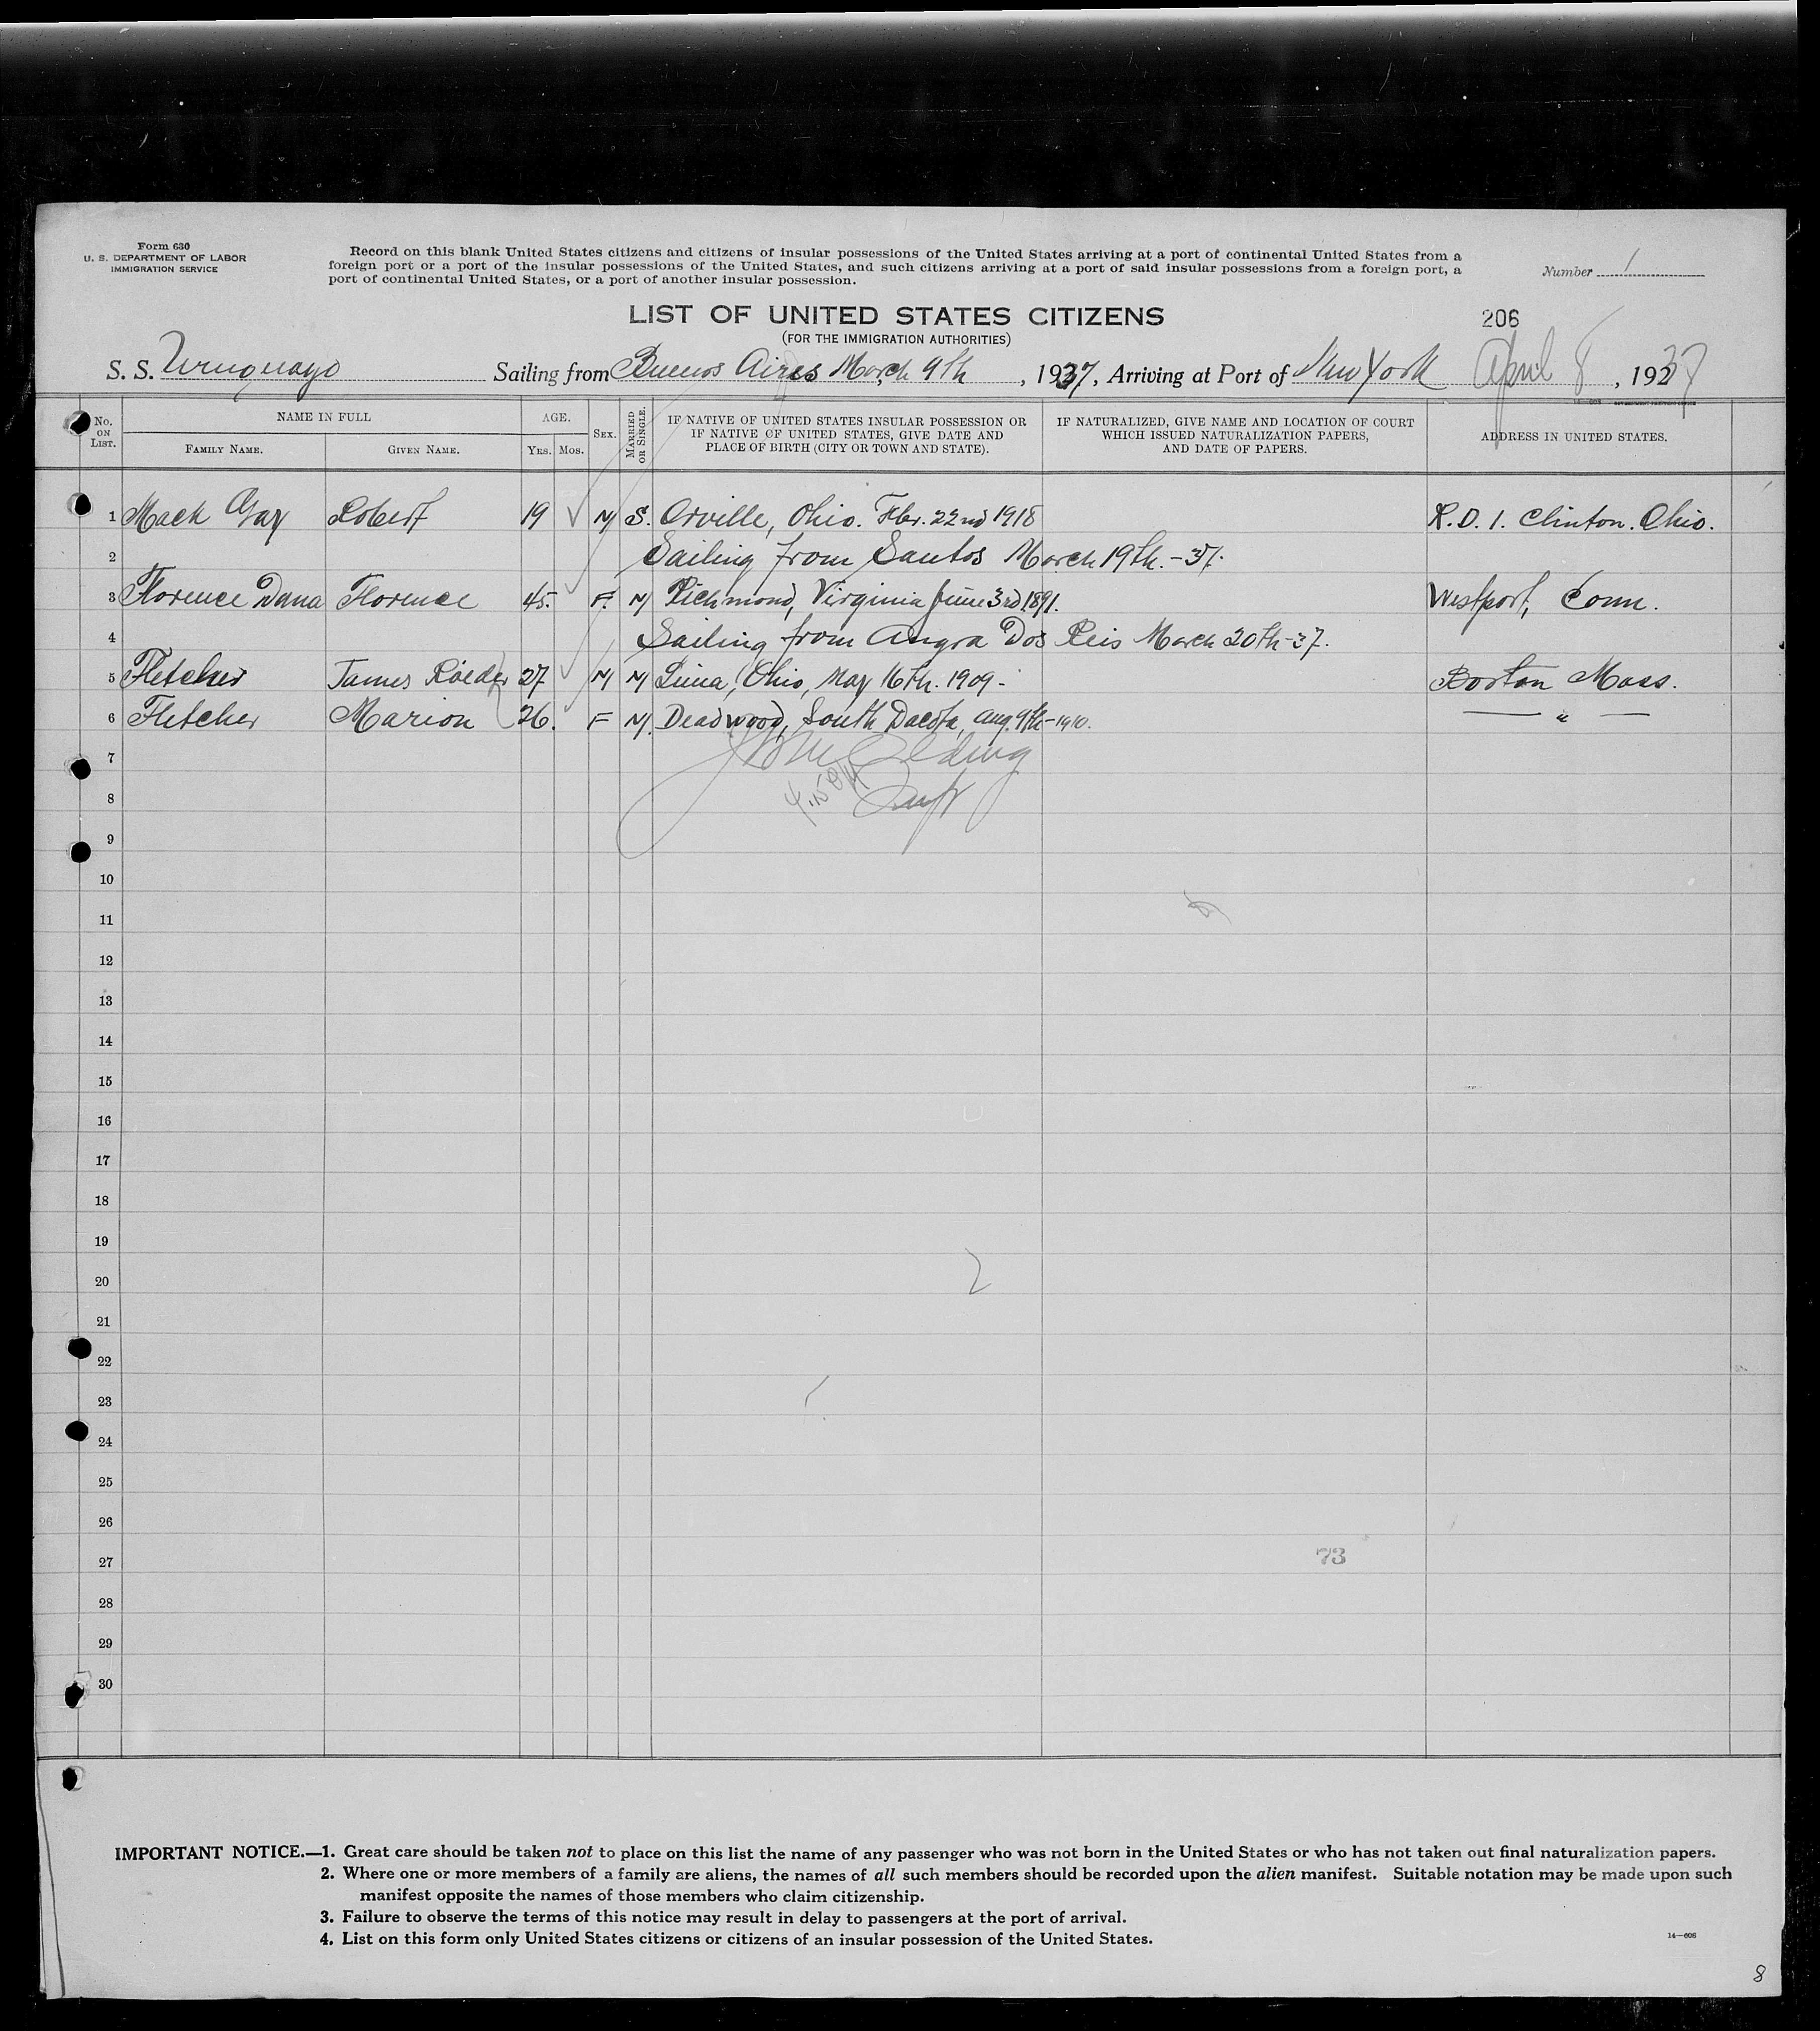 Form 630
U. S. DEPARTMENT OF LABOR
IMMIGRATION SERVICE
Record on this blank United States citizens and citizens of insular possessions of the United States arriving at a port of continental United States from a
foreign port or a port of the insular possessions of the United States, and such citizens arriving at a port of said insular possessions from a foreign port, a
port of continental United States, or a port of another insular possession.
Number 1
LIST OF UNITED STATES CITIZENS
(FOR THE IMMIGRATION AUTHORITIES)
206
S. S. Uruguayo Sailing from Buenos Aires March 9th, 1937, Arriving at Port of New York April 8, 1937
No. ON LIST. NAME IN FULL AGE. SEX. MARRIED OR SINGLE. IF NATIVE OF UNITED STATES INSULAR POSSESSION OR IF NATIVE OF UNITED STATES, GIVE DATE AND PLACE OF BIRTH (CITY OR TOWN AND STATE). IF NATURALIZED, GIVE NAME AND LOCATION OF COURT WHICH ISSUED NATURALIZATION PAPERS, AND DATE OF PAPERS. ADDRESS IN UNITED STATES.
FAMILY NAME. GIVEN NAME. YRS. MOS.
1 Mack Gay Robert 19 M S. Orville, Ohio. Fbr. 22nd 1918 R.D. 1. Clinton. Ohio.
2 Sailing from Santos March 19th.-37.
3 Florence Dana Florence 45. F. M Richmond, Virginia June 3rd 1891. Westport, Conn.
4 Sailing from Angra Dos Reis March 20th-37.
5 Fletcher James Roeder 27 M M Lima, Ohio, May 16th. 1909- Boston Mass.
6 Fletcher Marion 26. F M. Deadwood, South Dacota, Aug. 9th-1910. — " —
7
8
9
10
11
12
13
14
15
16
17
18
19
20
21
22
23
24
25
26
27 73
28
29
30
IMPORTANT NOTICE.—1. Great care should be taken not to place on this list the name of any passenger who was not born in the United States or who has not taken out final naturalization papers.
2. Where one or more members of a family are aliens, the names of all such members should be recorded upon the alien manifest. Suitable notation may be made upon such
manifest opposite the names of those members who claim citizenship.
3. Failure to observe the terms of this notice may result in delay to passengers at the port of arrival.
4. List on this form only United States citizens or citizens of an insular possession of the United States.
14—608
8